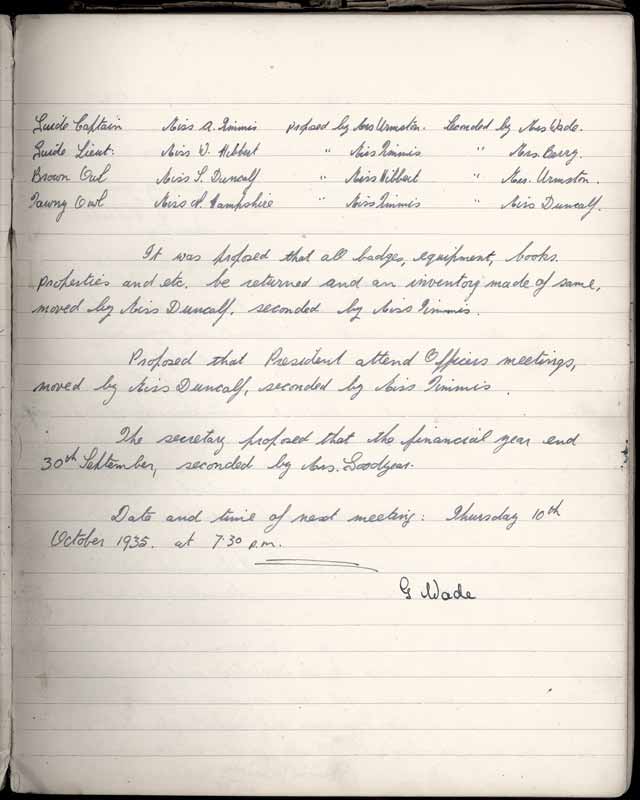 Guide Captain Miss A. Timmis proposed by Mrs Urmston. Seconded by Mrs Wade.
Guide Lieut: Miss W. Hibbert " Miss Timmis " Mrs. Berry.
Brown Owl Miss S. Duncalf " Miss Hibbert " Mrs. Urmston.
Tawny Owl Miss N. Hampshire " Miss Timmis " Miss Duncalf.
It was proposed that all badges, equipment, books.
properties and etc. be returned and an inventory made of same,
moved by Miss Duncalf. seconded by Miss Timmis.
Proposed that President attend Officers meetings,
moved by Miss Duncalf, seconded by Miss Timmis.
The secretary proposed that the financial year end
30th September, seconded by Mrs. Goodyear.
Date and time of next meeting: Thursday 10th
October 1935. at 7.30 p.m.
G Wade